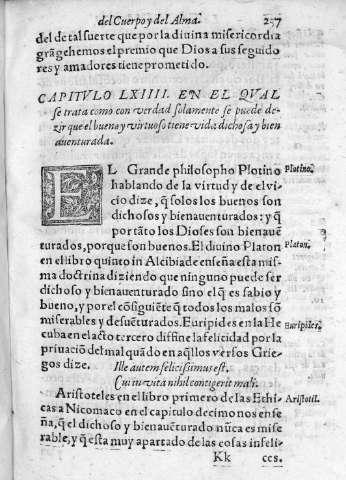 del Cuerpo y del Alma. 257
del de tal suerte que por la diuina misericordia
grãgehemos el premio que Dios a sus seguido
res y amadores tiene prometido.
CAPITVLO LXIIII. EN EL QVAL
se trata como con verdad solamente se puede de-
zir que el bueno y virtuoso tiene vida dichosa y bien
auenturada.
EL Grande philosopho Plotino
Plotino.
hablando de la virtud y de el vi
cio dize, q̃ solos los buenos son
dichosos y bienauenturados: y q̃
por tãto los Dioses son bienauẽ
turados, porque son buenos. El diuino Platon
Platon.
en el libro quinto in Alcibiade enseña esta mis-
ma doctrina diziendo que ninguno puede ser
dichoso y bienauenturado sino el q̃ es sabio y
bueno, y por el cõsiguiẽte q̃ todos los malos sõ
miserables y desuẽturados. Euripides en la He
Euripides.
cuba en el acto tercero diffine la felicidad por la
priuaciõ del mal quãdo en aq̃llos versos Grie-
gos dize. Ille autem felicissimus est,
Cui in vita nihil contigerit mali.
Aristoteles en el libro primero de las Ethi
Aristotil.
cas a Nicomaco en el capitulo decimo nos ense
ña, q̃ el dichoso y bienauẽturado nũca es mise
rable, y q̃ esta muy apartado de las cosas infeli-
Kk ces.